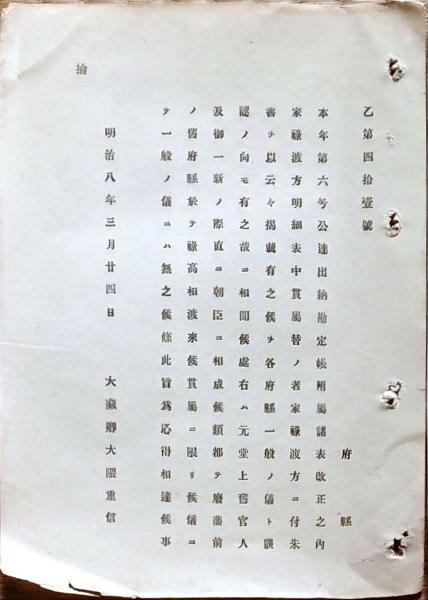 乙第四拾壹號
府縣
本年第六号公達出納勘定帳附屬諸表改正之内
家祿渡方明細表中貫屬替ノ者家祿渡方ニ付朱
書ヲ以云々揭載有之候ヲ各府縣一般ノ儀ト誤
認ノ向モ有之哉ニ相聞候處右ハ元堂上舊官人
及御一新ノ際直ニ朝臣ニ相成候類都テ廢藩前
ノ舊府縣於テ祿高相渡來候貫屬ニ限リ候儀ニ
テ一般ノ儀ニハ無之候條此旨爲心得相達候事
明治八年三月廿四日 大藏卿大隈重信